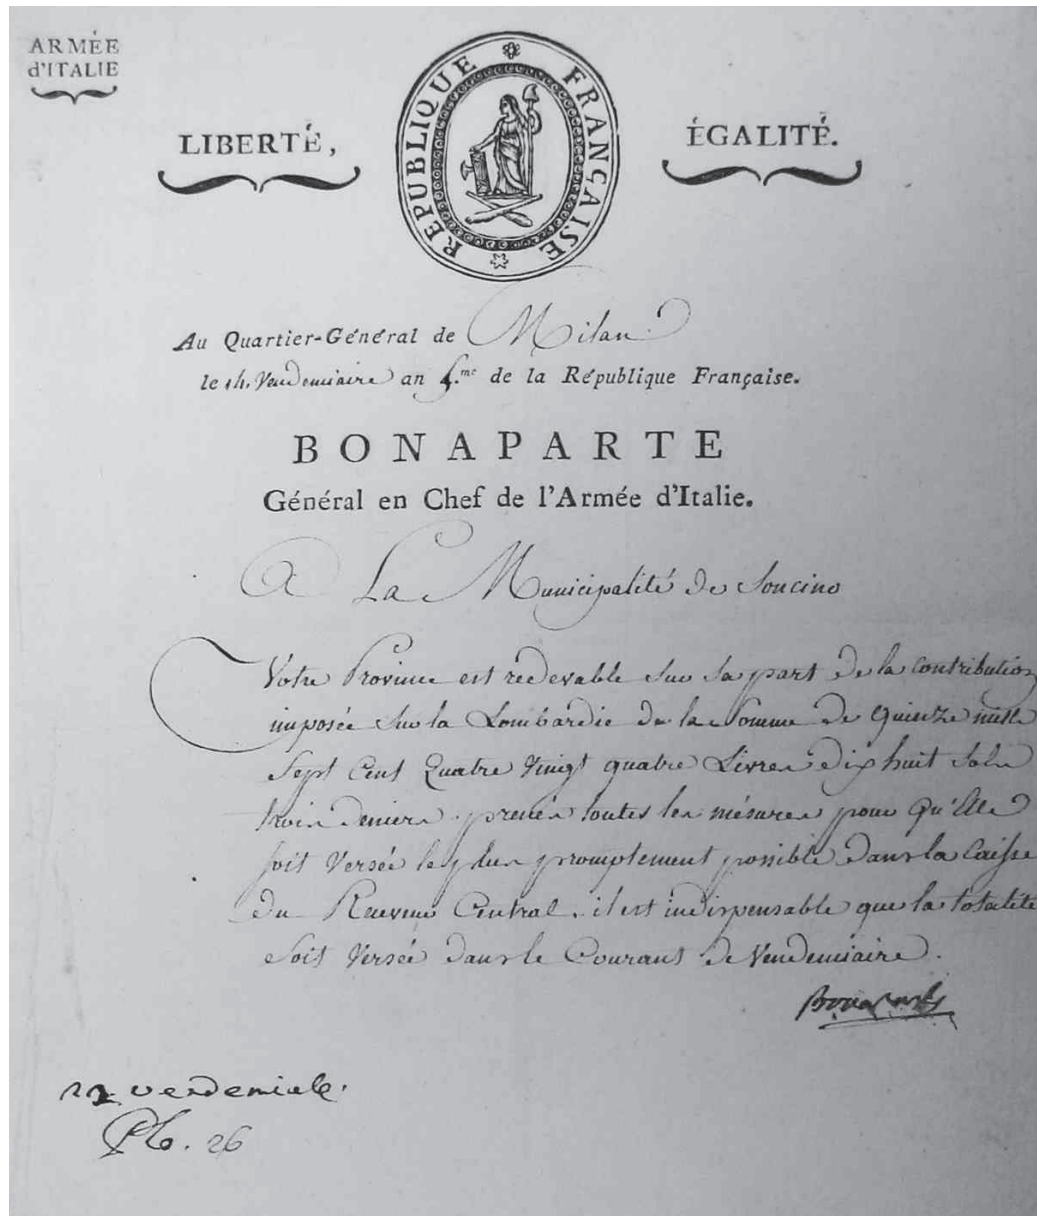 ARMÉE
d'ITALIE
LIBERTÉ,
RÉPUBLIQUE FRANÇAISE
ÉGALITÉ.
Au Quartier-Général de Milan
le 14. Vendemiaire an 5.me de la République Française.
BONAPARTE
Général en Chef de l'Armée d'Italie.
A La Municipalité de Soncino
Votre Province est redevable sur sa part de la Contribution
imposée sur la Lombardie de la Somme de Quinze mille
Sept Cent Quatre Vingt quatre Livres dix huit Sols
trois deniers. prenés toutes les mésures pour qu'Elle
soit Versée le plus promptement possible dans la Caisse
du Central. il est indispensable que la totalité
soit Versée dans le Courant de Vendemiaire.
Bonaparte
26